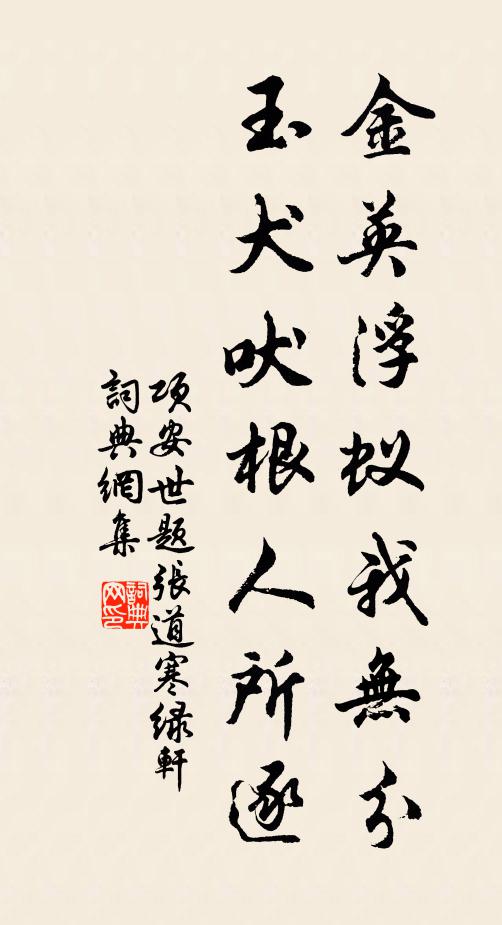 金英浮蚁我無分
玉犬吠根人所逐
项安世题張道寒绿軒
詞典網集
詞典网印